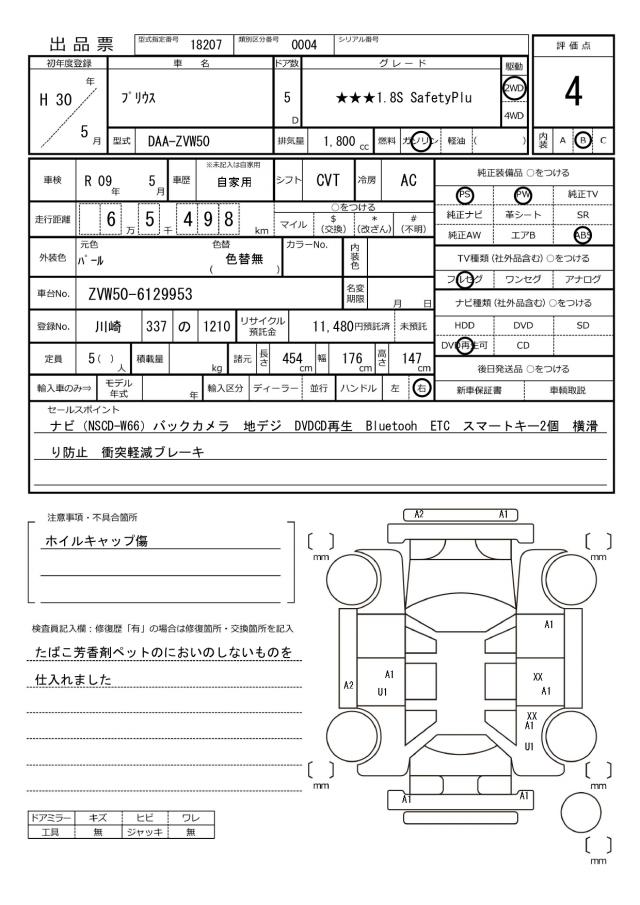 出品票 型式指定番号 18207 類別区分番号 0004 シリアル番号
評価点
4
内装 A B C
初年度登録 車名 ドア数 グレード 駆動
H 30 年 5 月
プリウス
5 D
★★★1.8S SafetyPlu
2WD
4WD
型式 DAA-ZVW50 排気量 1,800 cc 燃料 ガソリン 軽油 ( )
車検 R 09 年 5 月 車歴 ※未記入は自家用 自家用 シフト CVT 冷房 AC
走行距離 6 万 5 千 4 9 8 km
○をつける
マイル $ (交換) * (改ざん) # (不明)
外装色 元色 パール 色替 ( 色替無 ) カラーNo. 内装色
車台No. ZVW50-6129953 名変期限 月 日
登録No. 川崎 337 の 1210 リサイクル預託金 11,480円預託済 未預託
定員 5 ( ) 人 積載量 kg 諸元 長さ 454 cm 幅 176 cm 高さ 147 cm
輸入車のみ⇒ モデル年式 年 輸入区分 ディーラー 並行 ハンドル 左 右
純正装備品 ○をつける
PS PW 純正TV
純正ナビ 革シート SR
純正AW エアB ABS
TV種類 (社外品含む) ○をつける
フルセグ ワンセグ アナログ
ナビ種類 (社外品含む) ○をつける
HDD DVD SD
DVD再生可 CD
後日発送品 ○をつける
新車保証書 車輌取説
セールスポイント
ナビ (NSCD-W66) バックカメラ 地デジ DVDCD再生 Bluetooh ETC スマートキー2個 横滑
り防止 衝突軽減ブレーキ
注意事項・不具合箇所
ホイルキャップ傷
検査員記入欄：修復歴「有」の場合は修復箇所・交換箇所を記入
たばこ芳香剤ペットのにおいのしないものを
仕入れました
ドアミラー キズ ヒビ ワレ
工具 無 ジャッキ 無
A2 A1
[ ] mm
[ ] mm
A1
A1
A2 U1
XX
A1
XX
A1
U1
[ ] mm
[ ] mm
A1 A1
[ ] mm